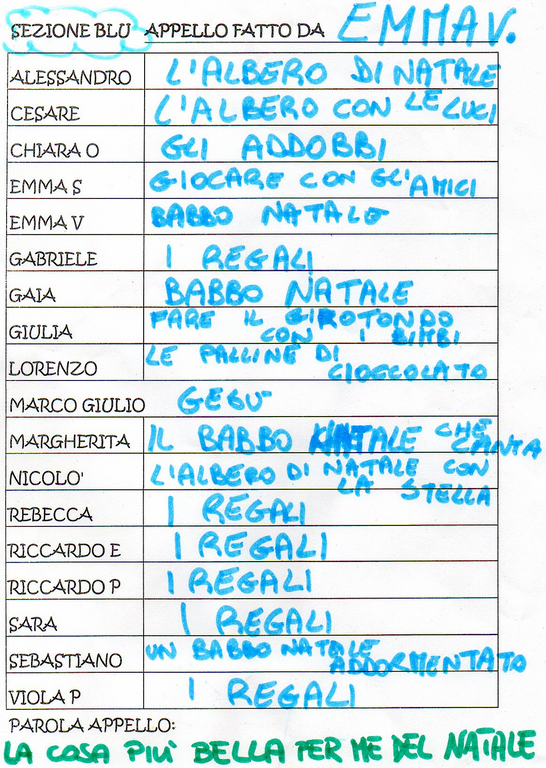 SEZIONE BLU APPELLO FATTO DA EMMA V.
ALESSANDRO L'ALBERO DI NATALE
CESARE L'ALBERO CON LE LUCI
CHIARA O GLI ADDOBBI
EMMA S GIOCARE CON GL'AMICI
EMMA V BABBO NATALE
GABRIELE I REGALI
GAIA BABBO NATALE
GIULIA FARE IL GIROTONDO
CON I BIMBI
LORENZO LE PALLINE DI
CIOCCOLATO
MARCO GIULIO GESU'
MARGHERITA IL BABBO NATALE CHE
CANTA
NICOLO' L'ALBERO DI NATALE CON
LA STELLA
REBECCA I REGALI
RICCARDO E I REGALI
RICCARDO P I REGALI
SARA I REGALI
SEBASTIANO UN BABBO NATALE
ADDORMENTATO
VIOLA P I REGALI
PAROLA APPELLO:
LA COSA PIU' BELLA PER ME DEL NATALE